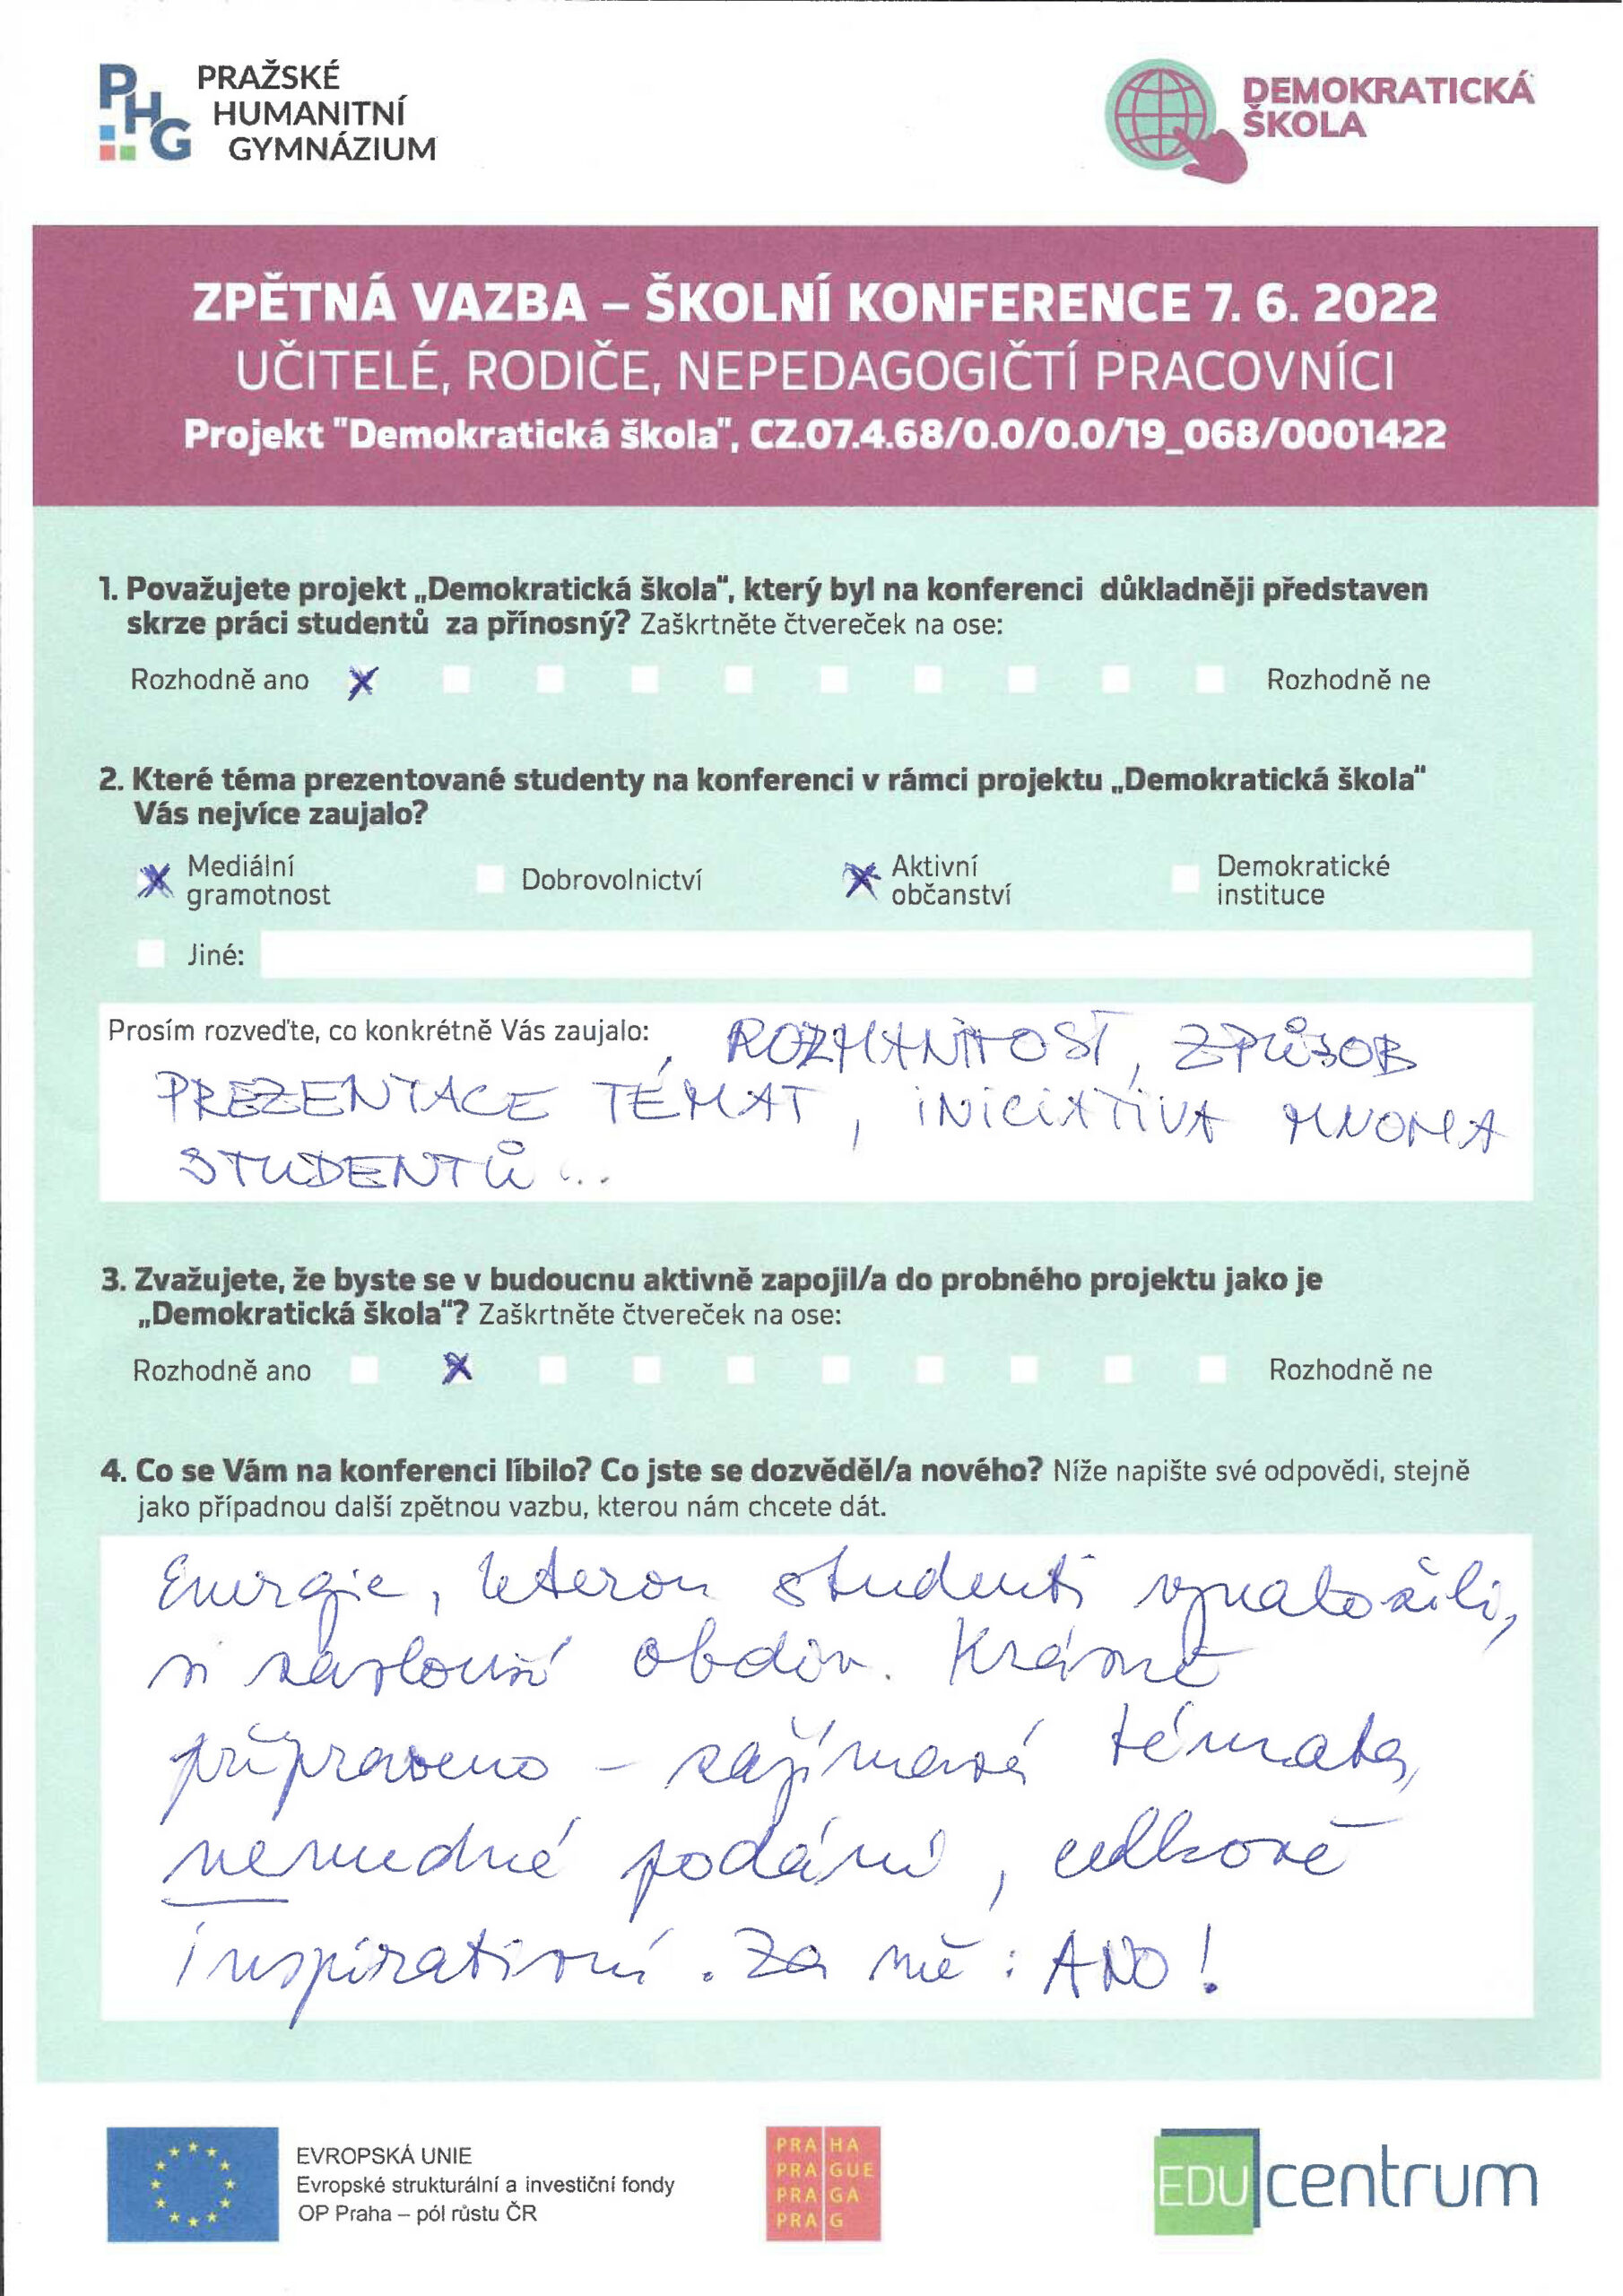 PHG
PRAŽSKÉ
HUMANITNÍ
GYMNÁZIUM
DEMOKRATICKÁ
ŠKOLA
ZPĚTNÁ VAZBA – ŠKOLNÍ KONFERENCE 7. 6. 2022
UČITELÉ, RODIČE, NEPEDAGOGIČTÍ PRACOVNÍCI
Projekt "Demokratická škola", CZ.07.4.68/0.0/0.0/19_068/0001422
1. Považujete projekt „Demokratická škola“, který byl na konferenci důkladněji představen
skrze práci studentů za přínosný? Zaškrtněte čtvereček na ose:
Rozhodně ano x Rozhodně ne
2. Které téma prezentované studenty na konferenci v rámci projektu „Demokratická škola“
Vás nejvíce zaujalo?
x Mediální gramotnost Dobrovolnictví x Aktivní občanství Demokratické instituce
Jiné:
Prosím rozveďte, co konkrétně Vás zaujalo: ROZMANITOST, ZPŮSOB
PREZENTACE TÉMAT, INICIATIVA MNOHA
STUDENTŮ ...
3. Zvažujete, že byste se v budoucnu aktivně zapojil/a do probného projektu jako je
„Demokratická škola“? Zaškrtněte čtvereček na ose:
Rozhodně ano x Rozhodně ne
4. Co se Vám na konferenci líbilo? Co jste se dozvěděl/a nového? Níže napište své odpovědi, stejně
jako případnou další zpětnou vazbu, kterou nám chcete dát.
Energie, kterou studenti vynaložili,
si zaslouží obdiv. Krásně
připraveno – zajímavá témata,
nenudné podání, celkově
inspirativní. Za mě : ANO!
EVROPSKÁ UNIE
Evropské strukturální a investiční fondy
OP Praha – pól růstu ČR
PRA HA
PRA GUE
PRA GA
PRA G
EDUcentrum